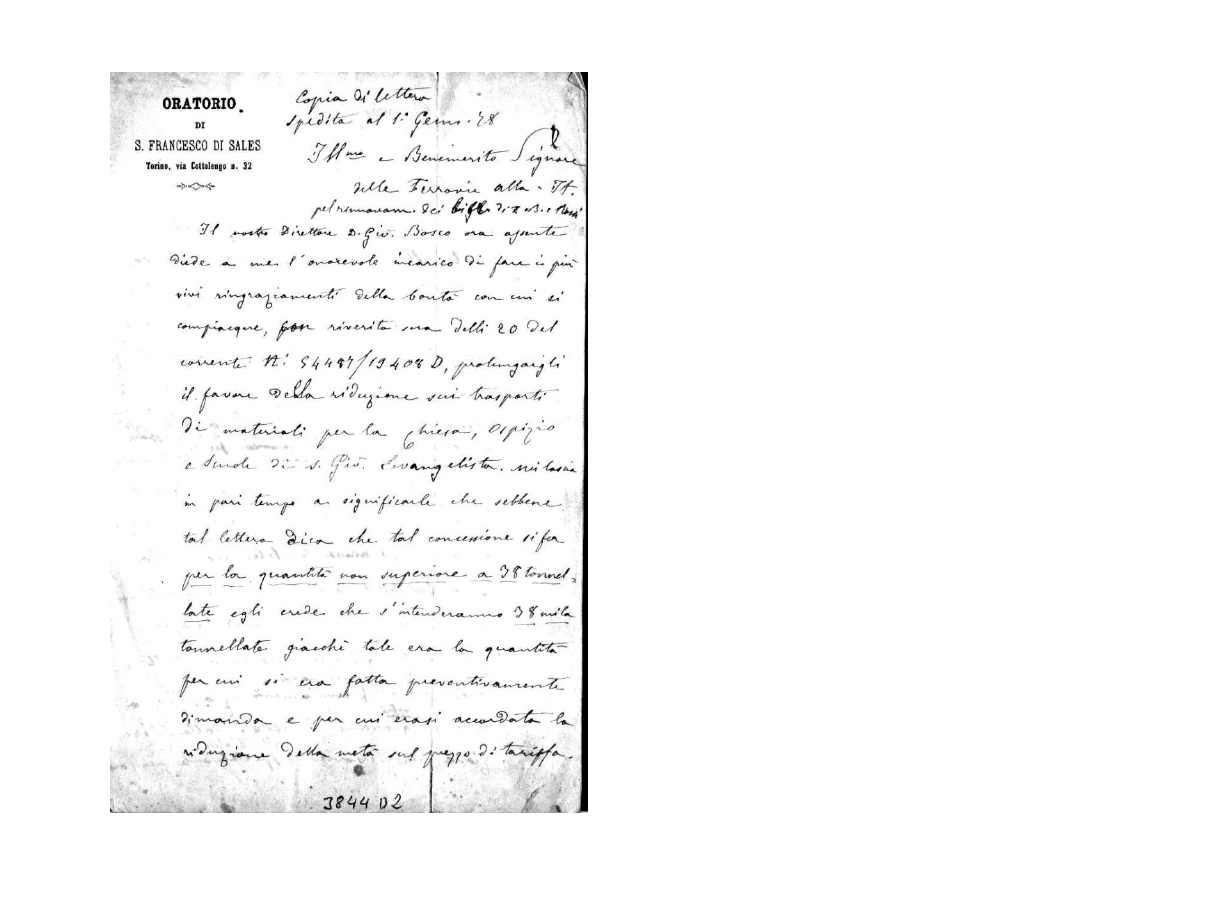 ORATORIO
DI
S. FRANCESCO DI SALES
Torino, via Cottolengo n. 32
Copia di lettera
spedita al 1° Genn. 78
Ill.mo e Benemerito Signore
delle Ferrovie alta - It.
pel rinnovam. dei
Il nostro Direttore D. Gio. Bosco ora assente
diede a me l'onorevole incarico di fare i più
vivi ringraziamenti della bontà con cui si
compiacque, riverita sua delli 20 del
corrente N.° 54487/19408 D, prolungargli
il favore della riduzione sui trasporti
di materiali per la Chiesa, Ospizio
e Scuole di S. Gio. Evangelista.
in pari tempo a significarle che sebbene
tal lettera dica che tal concessione si fa
per la quantità non superiore a 38 tonnel=
late egli crede che s'intenderanno 38 mila
tonnellate giacchè tale era la quantità
per cui si era fatta preventivamente
dimanda e per cui erasi accordata la
riduzione della metà sul prezzo di tariffa.
3844 D2